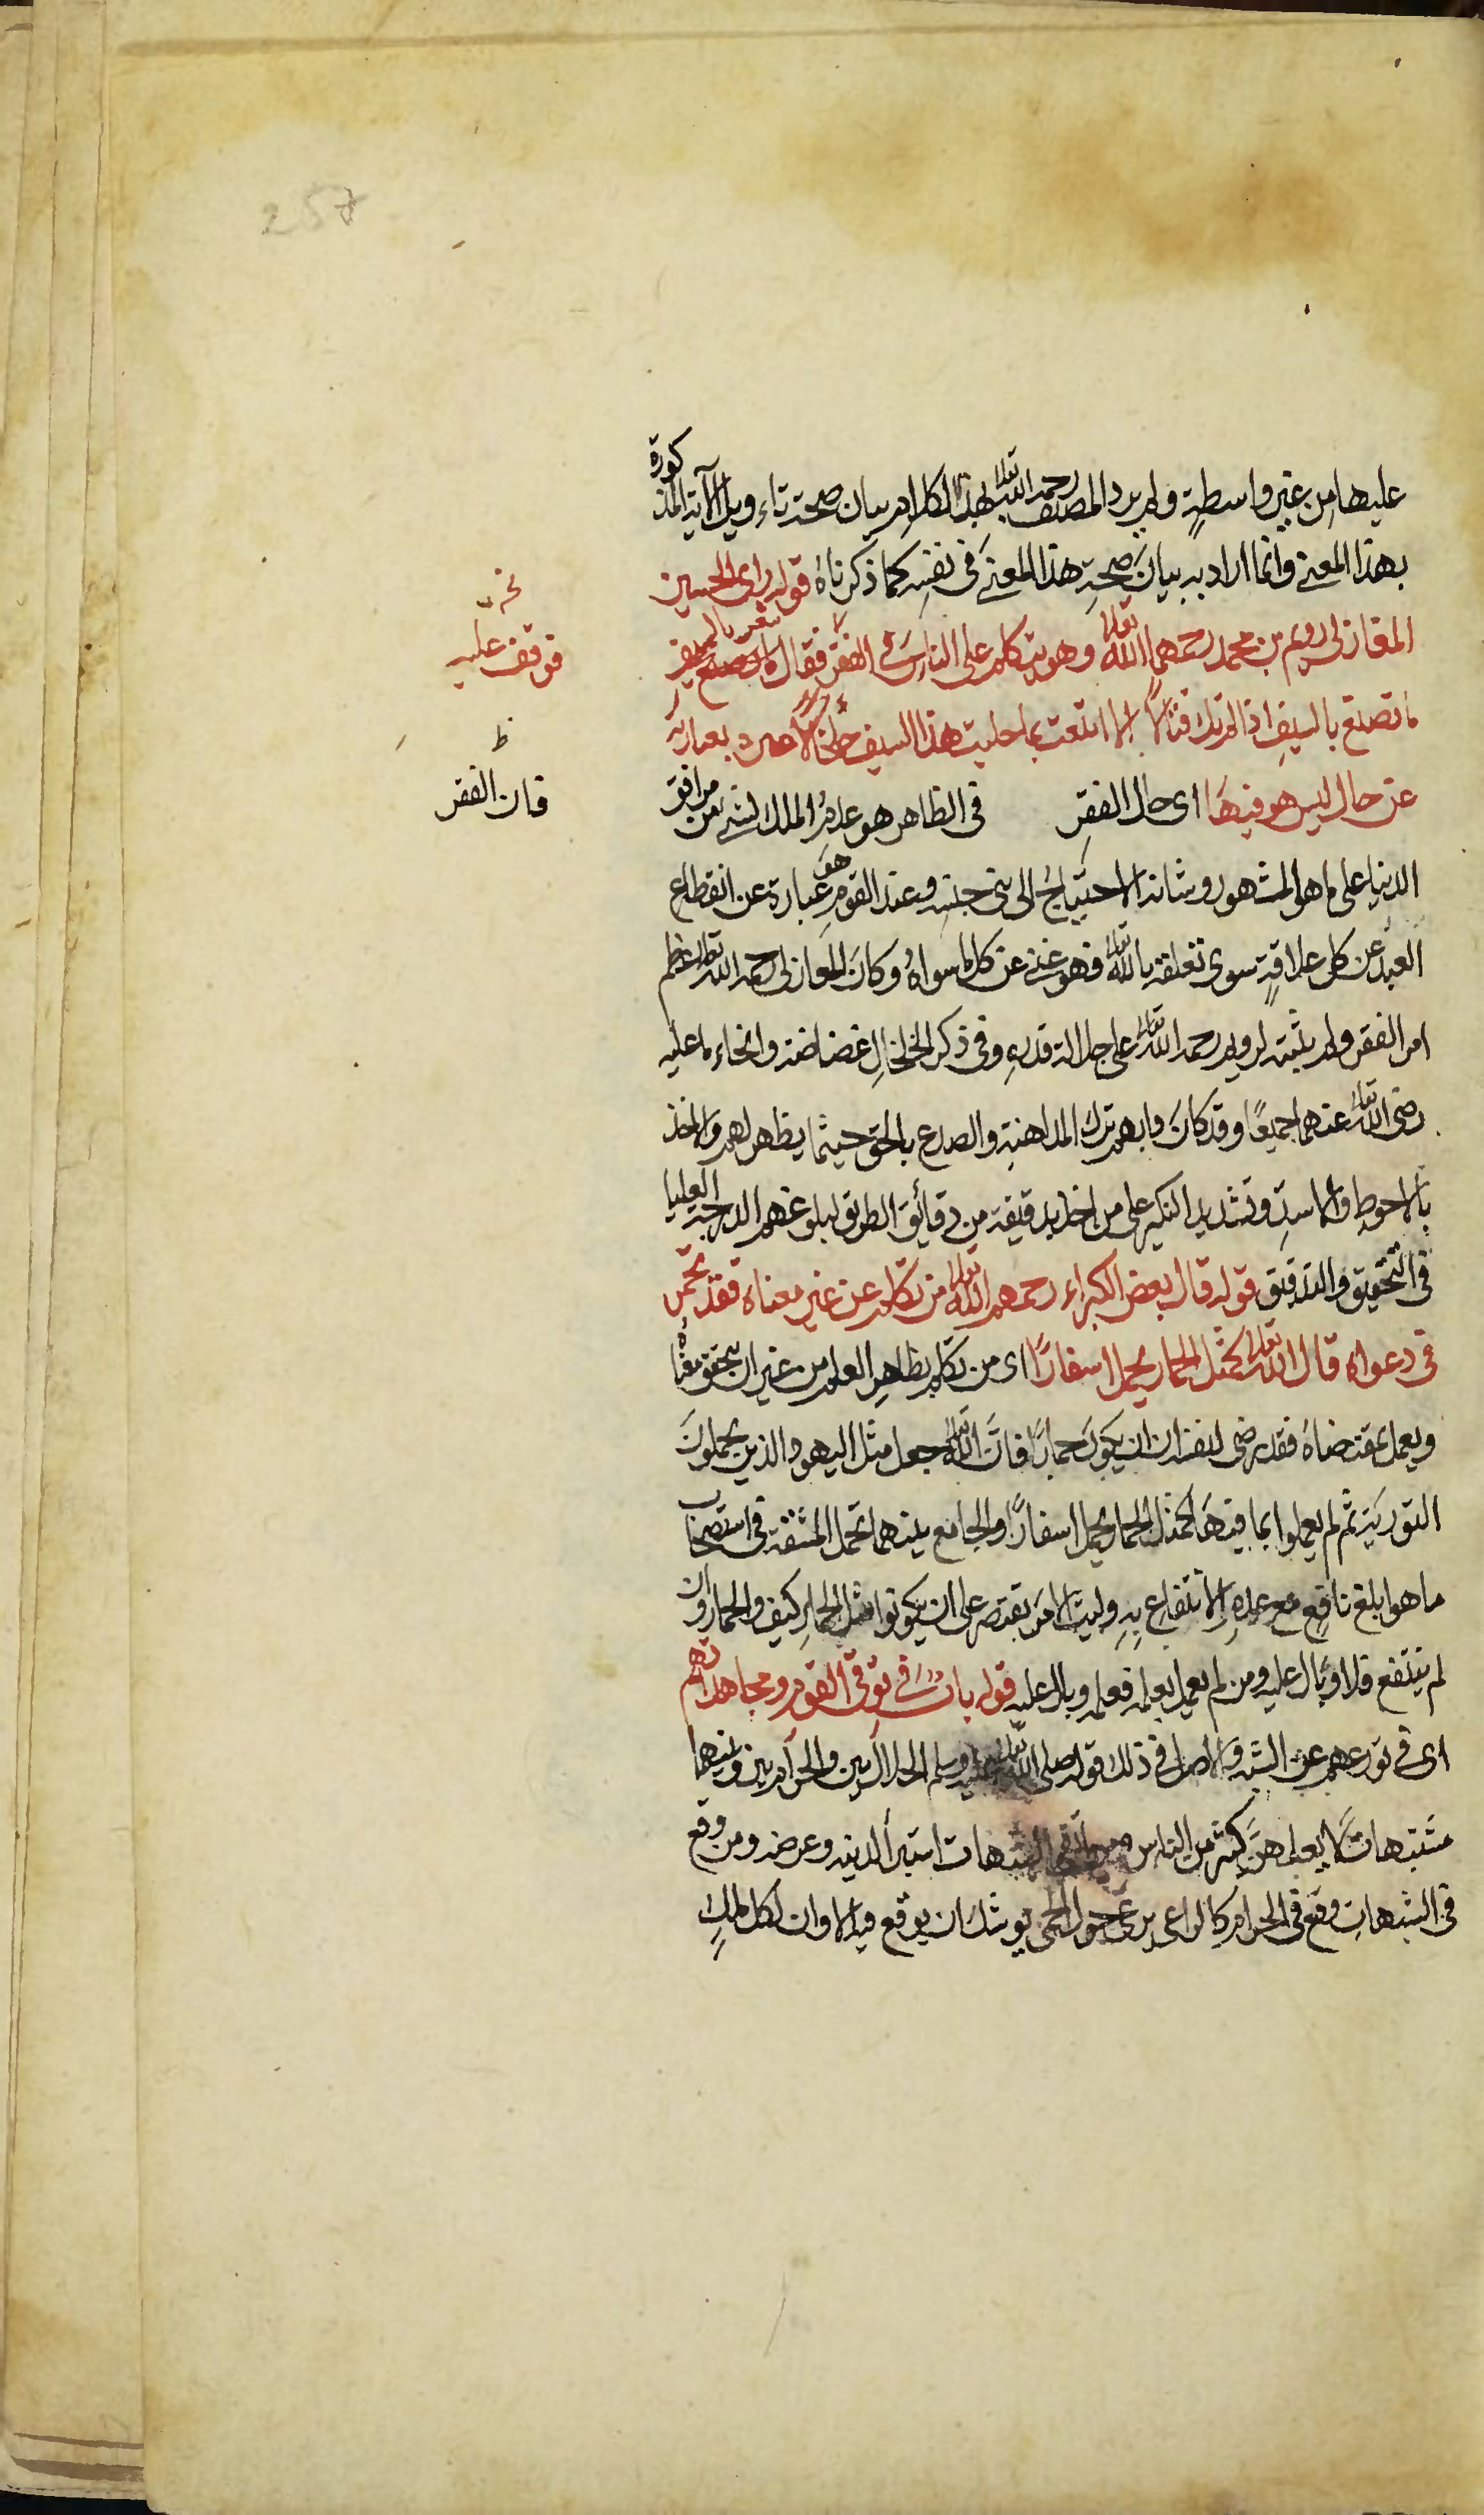 257
عليها من غير واسطةٍ ولم يرد المصنف رحمه الله تعالى بهذا الكلام بيان صحة تاءويل الآية المذكورة
بهذا المعنى وانما اراد به بيانَ صحةِ هذا المعنى فى نفسه كما ذكرناهُ قوله راى الحسين
المغازلى رويم بن محمد رحمهما الله تعالى وهو يتكلم على الناس فى الفقر فقال
نخـ
فوقف عليه
ما تصنع بالسيفِ اذا لم تك قتالًا الا ابتعت بما حليت هذا السيف خلخالا بعبارته
عن حال ليس هو فيها اى حال الفقرِ فى الظاهر هو عدمُ الملك لشئ من مرافق
ظ
فان الفقر
الدنيا على ما هو المشهور وشانه الاحتياجُ الى بنى جنسه وعند القوم هو عبارة عن انقطاع
العبد عن كل علاقةٍ سوى تعلقه بالله تعالى فهو غنى عن كل ما سواهُ وكانَ المغازلى رحمه الله تعالى عظم
امر الفقر ولم يثبته لرويم رحمه الله تعالى على جلالة قدرهِ وفى ذكر الخلخالِ غضاضة وانحاء ما عليه
رضى الله تعالى عنهما جميعًا وقد كانَ دابهم ترك المداهنةِ والصدع بالحق حيثما يظهر لهم والاخذ
بالاحوط والاسدِ وتشديد النكير على من اخل بدقيقة من دقائق الطريق لبلوغهم الدرجة العليا
فى التحقيق والتدقيق قوله قال بعض الكبراء رحمهم الله تعالى من تكلم عن غير معناه فقد تحمّر
فى دعواه قال الله تعالى كمثل الحمار يحمل اسفارًا اى من تكلم بظاهرِ العلم من غير ان يتحقق معناهُ
ويعمل بمقتضاهُ فقد رضى لنفسه ان يكونَ حمارًا فانَّ الله تعالى جعل مثل اليهود الذين يحملونَ
التورية ثم لم يعملوا بما فيها كمثل الحمار يحمل اسفارًا والجامع بينهما تحمل المشقة فى استصحاب
ما هو ابلغ نافعٍ مع عدم الانتفاع بهِ وليت الامر يقتصر على ان يكونوا مثل الحمار كيف والحمار وان
لم ينتفع فلا وبال عليه ومن لم يعمل بعلمه فعلمه وبال عليه قوله بابٌ فى توقى القوم ومجاهداتهم
اى فى تورعهم عن الشبه والاصل فى ذلك قوله صلى الله تعالى عليه وسلم الحلال بين والحرام بين وبينهما
مشتبهات لا يعلمهنَّ كثير من الناس فمن اتقى الشبهات استبرأ لدينه وعرضه ومن وقع
فى الشبهاتِ وقع فى الحرام كالراعى يرعى حول الحمى يوشك ان يوقع فيه الا وان لكل ملكٍ